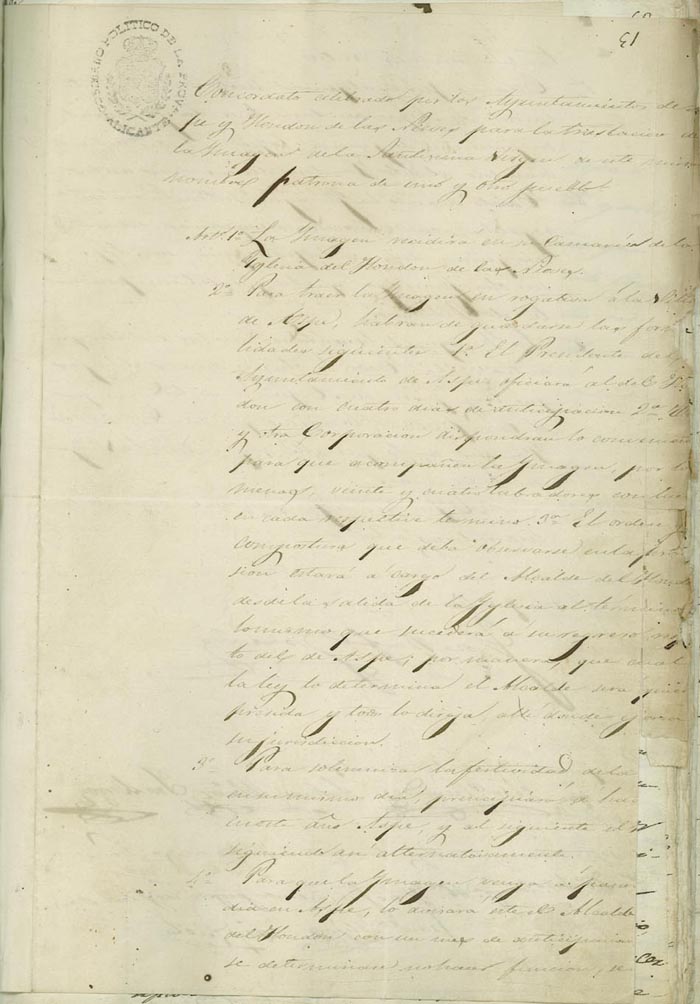 GOBIERNO POLITICO DE LA PROV.ª
ALICANTE
31
Concordato celebrado por los Ayuntamientos de
pe y Hondon de las Nieves para la traslacion
la Ymagen de la Santisima Virgen de este mismo
nombre patrona de uno y otro pueblo
Art.º 1.º La Ymagen residirá en su Camarin de la
Yglesia del Hondon de las Nieves.
2.º Para traer la Ymagen en rogativa á la
de Aspe, habran de guardarse las for
lidades siguientes 1.ª El Presidente del
Ayuntamiento de Aspe oficiará al del
don con cuatro dias de anticipacion 2.ª
y otra Corporacion dispondran lo
para que acompañen la Ymagen, por lo
menos, veinte y cuatro labradores con
en cada respectivo termino. 3.ª El orden
compostura que deba observarse en la
sion estará á cargo del Alcalde del
desde la salida de la Yglesia al termino
lo mismo que sucederá á su regreso
to del de Aspe; por manera, que cual
la ley lo determina el Alcalde sera quien
presida, y todo lo dirija, allí donde
su jurisdiccion.
3.º Para solemnizar la festividad de la
en su mismo dia, principiará
en este año Aspe, y al siguiente el
siguiendo asi alternativamente.
4.º Para que la Ymagen venga á
dia en Aspe, lo avisará este al Alcalde
del Hondon con un mes de anticipacion
se determinare no hacer funcion, se